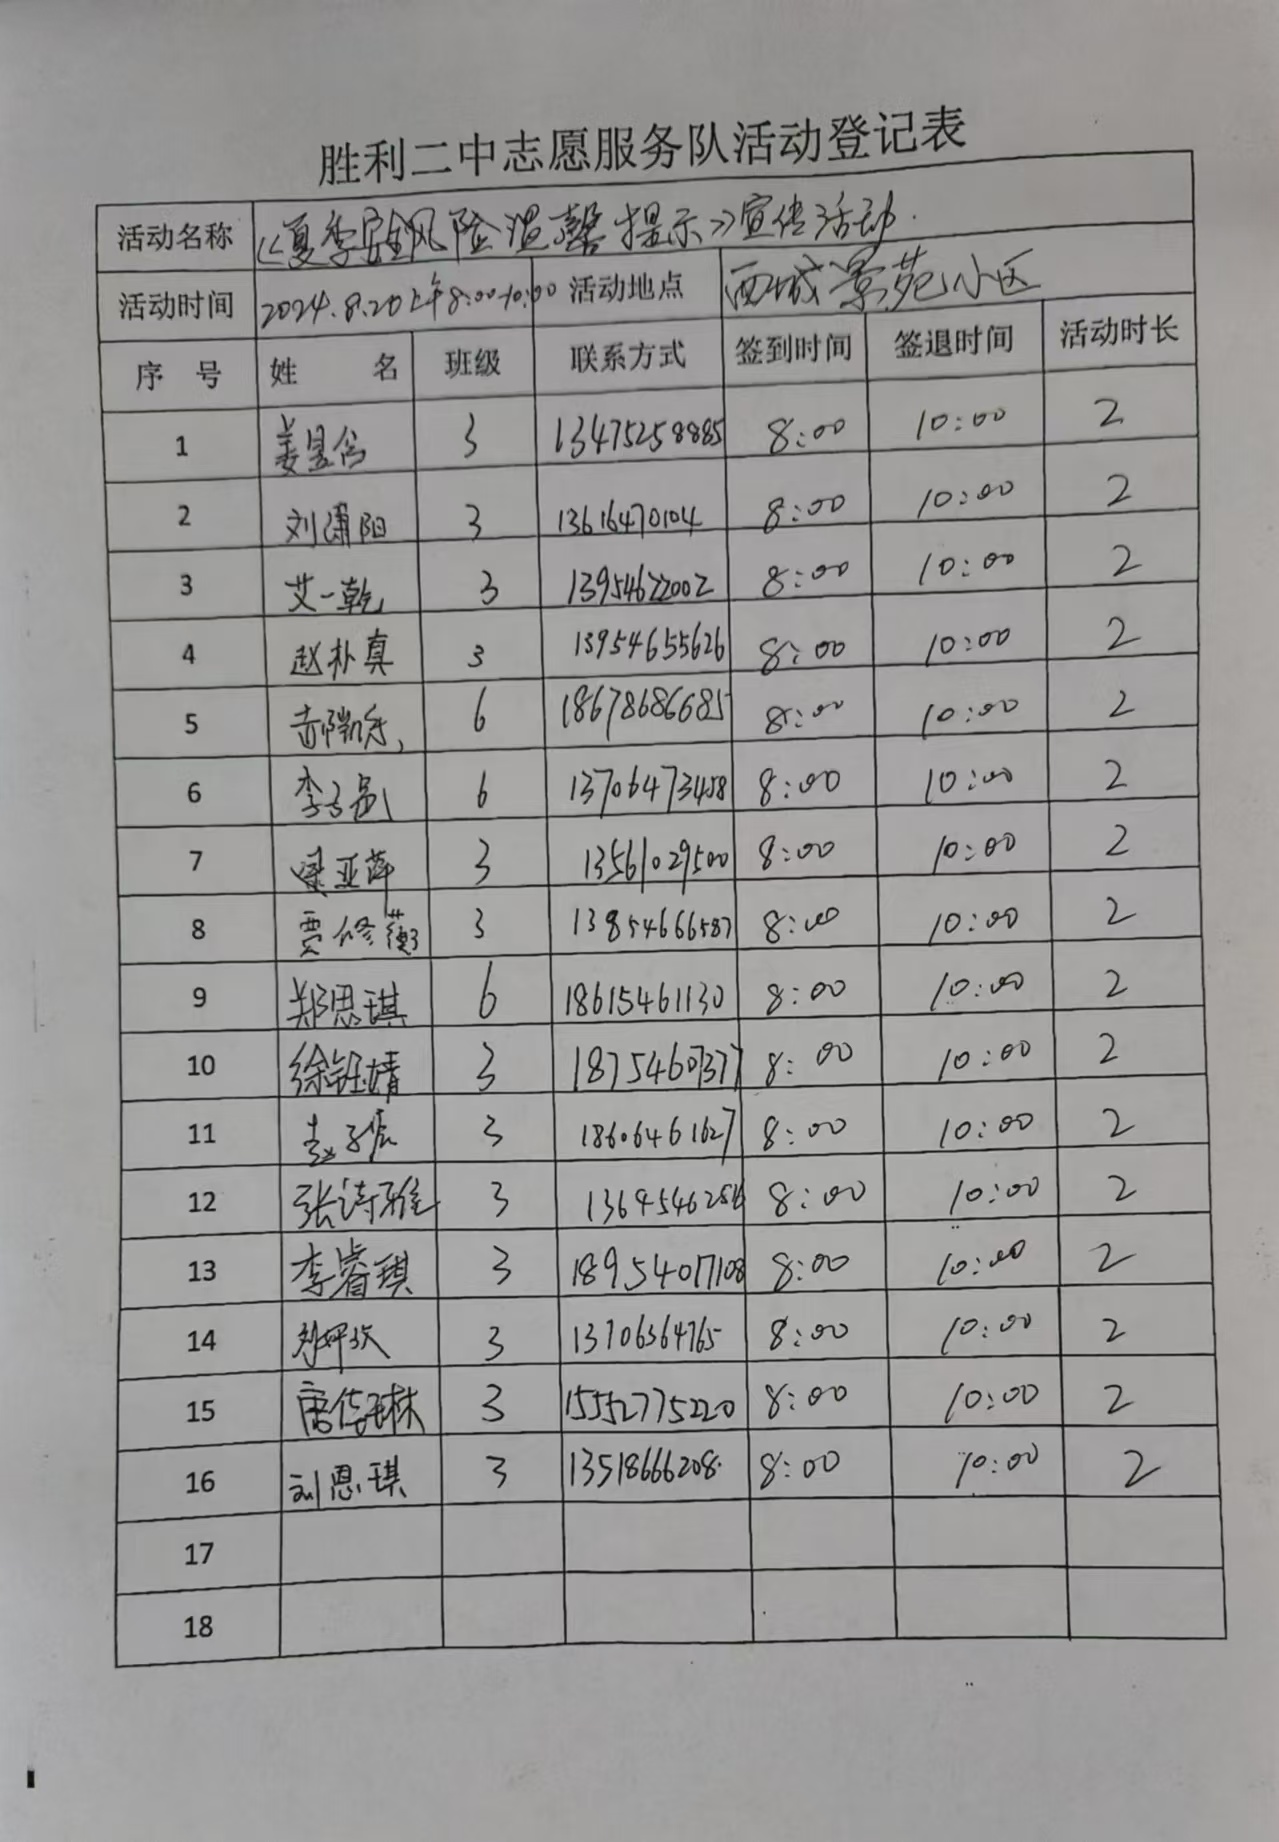 胜利二中志愿服务队活动登记表
活动名称 《夏季安全风险温馨提示》宣传活动.
活动时间 2024.8.20上午8:00-10:00 活动地点 西城景苑小区
序号 姓名 班级 联系方式 签到时间 签退时间 活动时长
1 姜昱 3 13475258885 8:00 10:00 2
2 刘潇阳 3 13616470104 8:00 10:00 2
3 艾一乾 3 13954622002 8:00 10:00 2
4 赵朴真 3 13954655626 8:00 10:00 2
5 6 18678686685 8:00 10:00 2
6 李子勋 6 13706473458 8:00 10:00 2
7 亚萍 3 13561029500 8:00 10:00 2
8 贾修蘅 3 13854666587 8:00 10:00 2
9 郑思琪 6 18615461130 8:00 10:00 2
10 徐钰婧 3 18754607377 8:00 10:00 2
11 3 18606461627 8:00 10:00 2
12 张诗雅 3 8:00 10:00 2
13 李睿琪 3 18954017108 8:00 10:00 2
14 3 13706364765 8:00 10:00 2
15 唐佳琳 3 15552775220 8:00 10:00 2
16 刘恩琪 3 13518666208 8:00 10:00 2
17
18